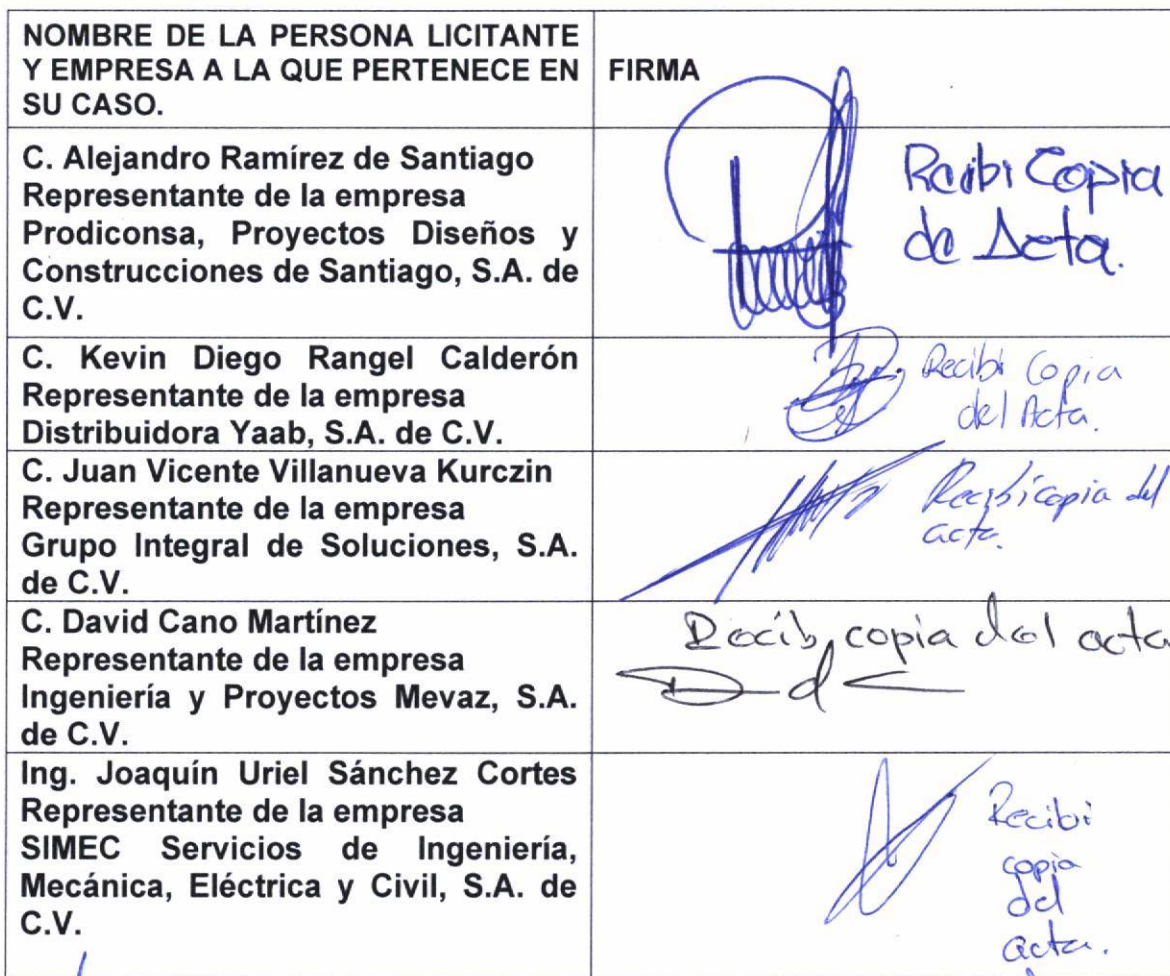 NOMBRE DE LA PERSONA LICITANTE
Y EMPRESA A LA QUE PERTENECE EN
SU CASO.
FIRMA
C. Alejandro Ramírez de Santiago
Representante de la empresa
Prodiconsa, Proyectos Diseños y
Construcciones de Santiago, S.A. de
C.V.
Recibi Copia
de Acta.
C. Kevin Diego Rangel Calderón
Representante de la empresa
Distribuidora Yaab, S.A. de C.V.
Recibi Copia
del Acta.
C. Juan Vicente Villanueva Kurczin
Representante de la empresa
Grupo Integral de Soluciones, S.A.
de C.V.
Recibí copia del
acta.
C. David Cano Martínez
Representante de la empresa
Ingeniería y Proyectos Mevaz, S.A.
de C.V.
Recibi copia del acta
Ing. Joaquín Uriel Sánchez Cortes
Representante de la empresa
SIMEC Servicios de Ingeniería,
Mecánica, Eléctrica y Civil, S.A. de
C.V.
Recibi
copia
del
acta.